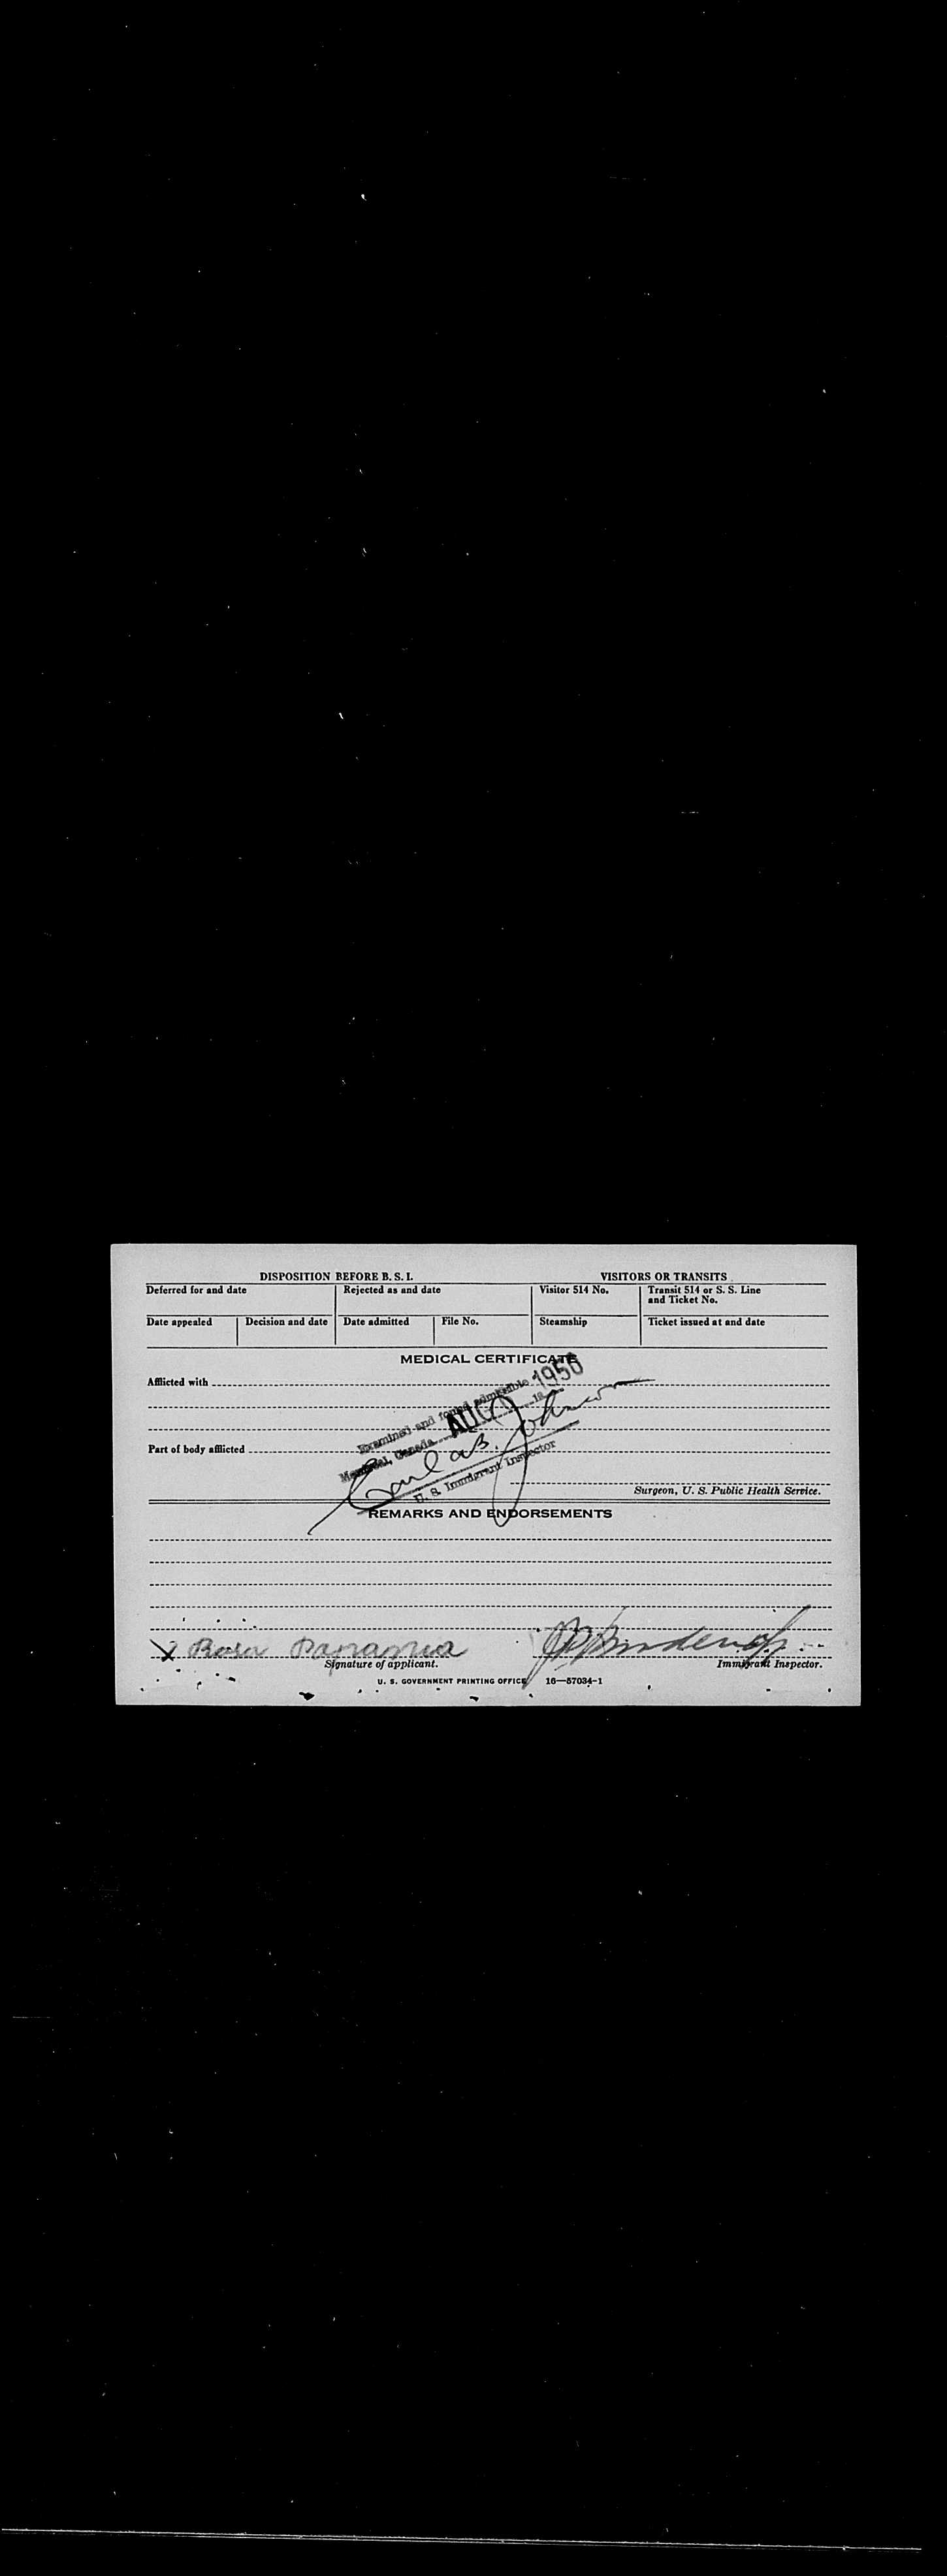 DISPOSITION BEFORE B. S. I. VISITORS OR TRANSITS
Deferred for and date Rejected as and date Visitor 514 No. Transit 514 or S. S. Line and Ticket No.
Date appealed Decision and date Date admitted File No. Steamship Ticket issued at and date
MEDICAL CERTIFICATE
Afflicted with
Examined and found admissible
Montreal, Canada AUG 1950 19
Part of body afflicted
Earl B. Johnson
U. S. Immigrant Inspector
Surgeon, U. S. Public Health Service.
REMARKS AND ENDORSEMENTS
X Rosa
Signature of applicant. Immigrant Inspector.
U. S. GOVERNMENT PRINTING OFFICE 16—57034-1